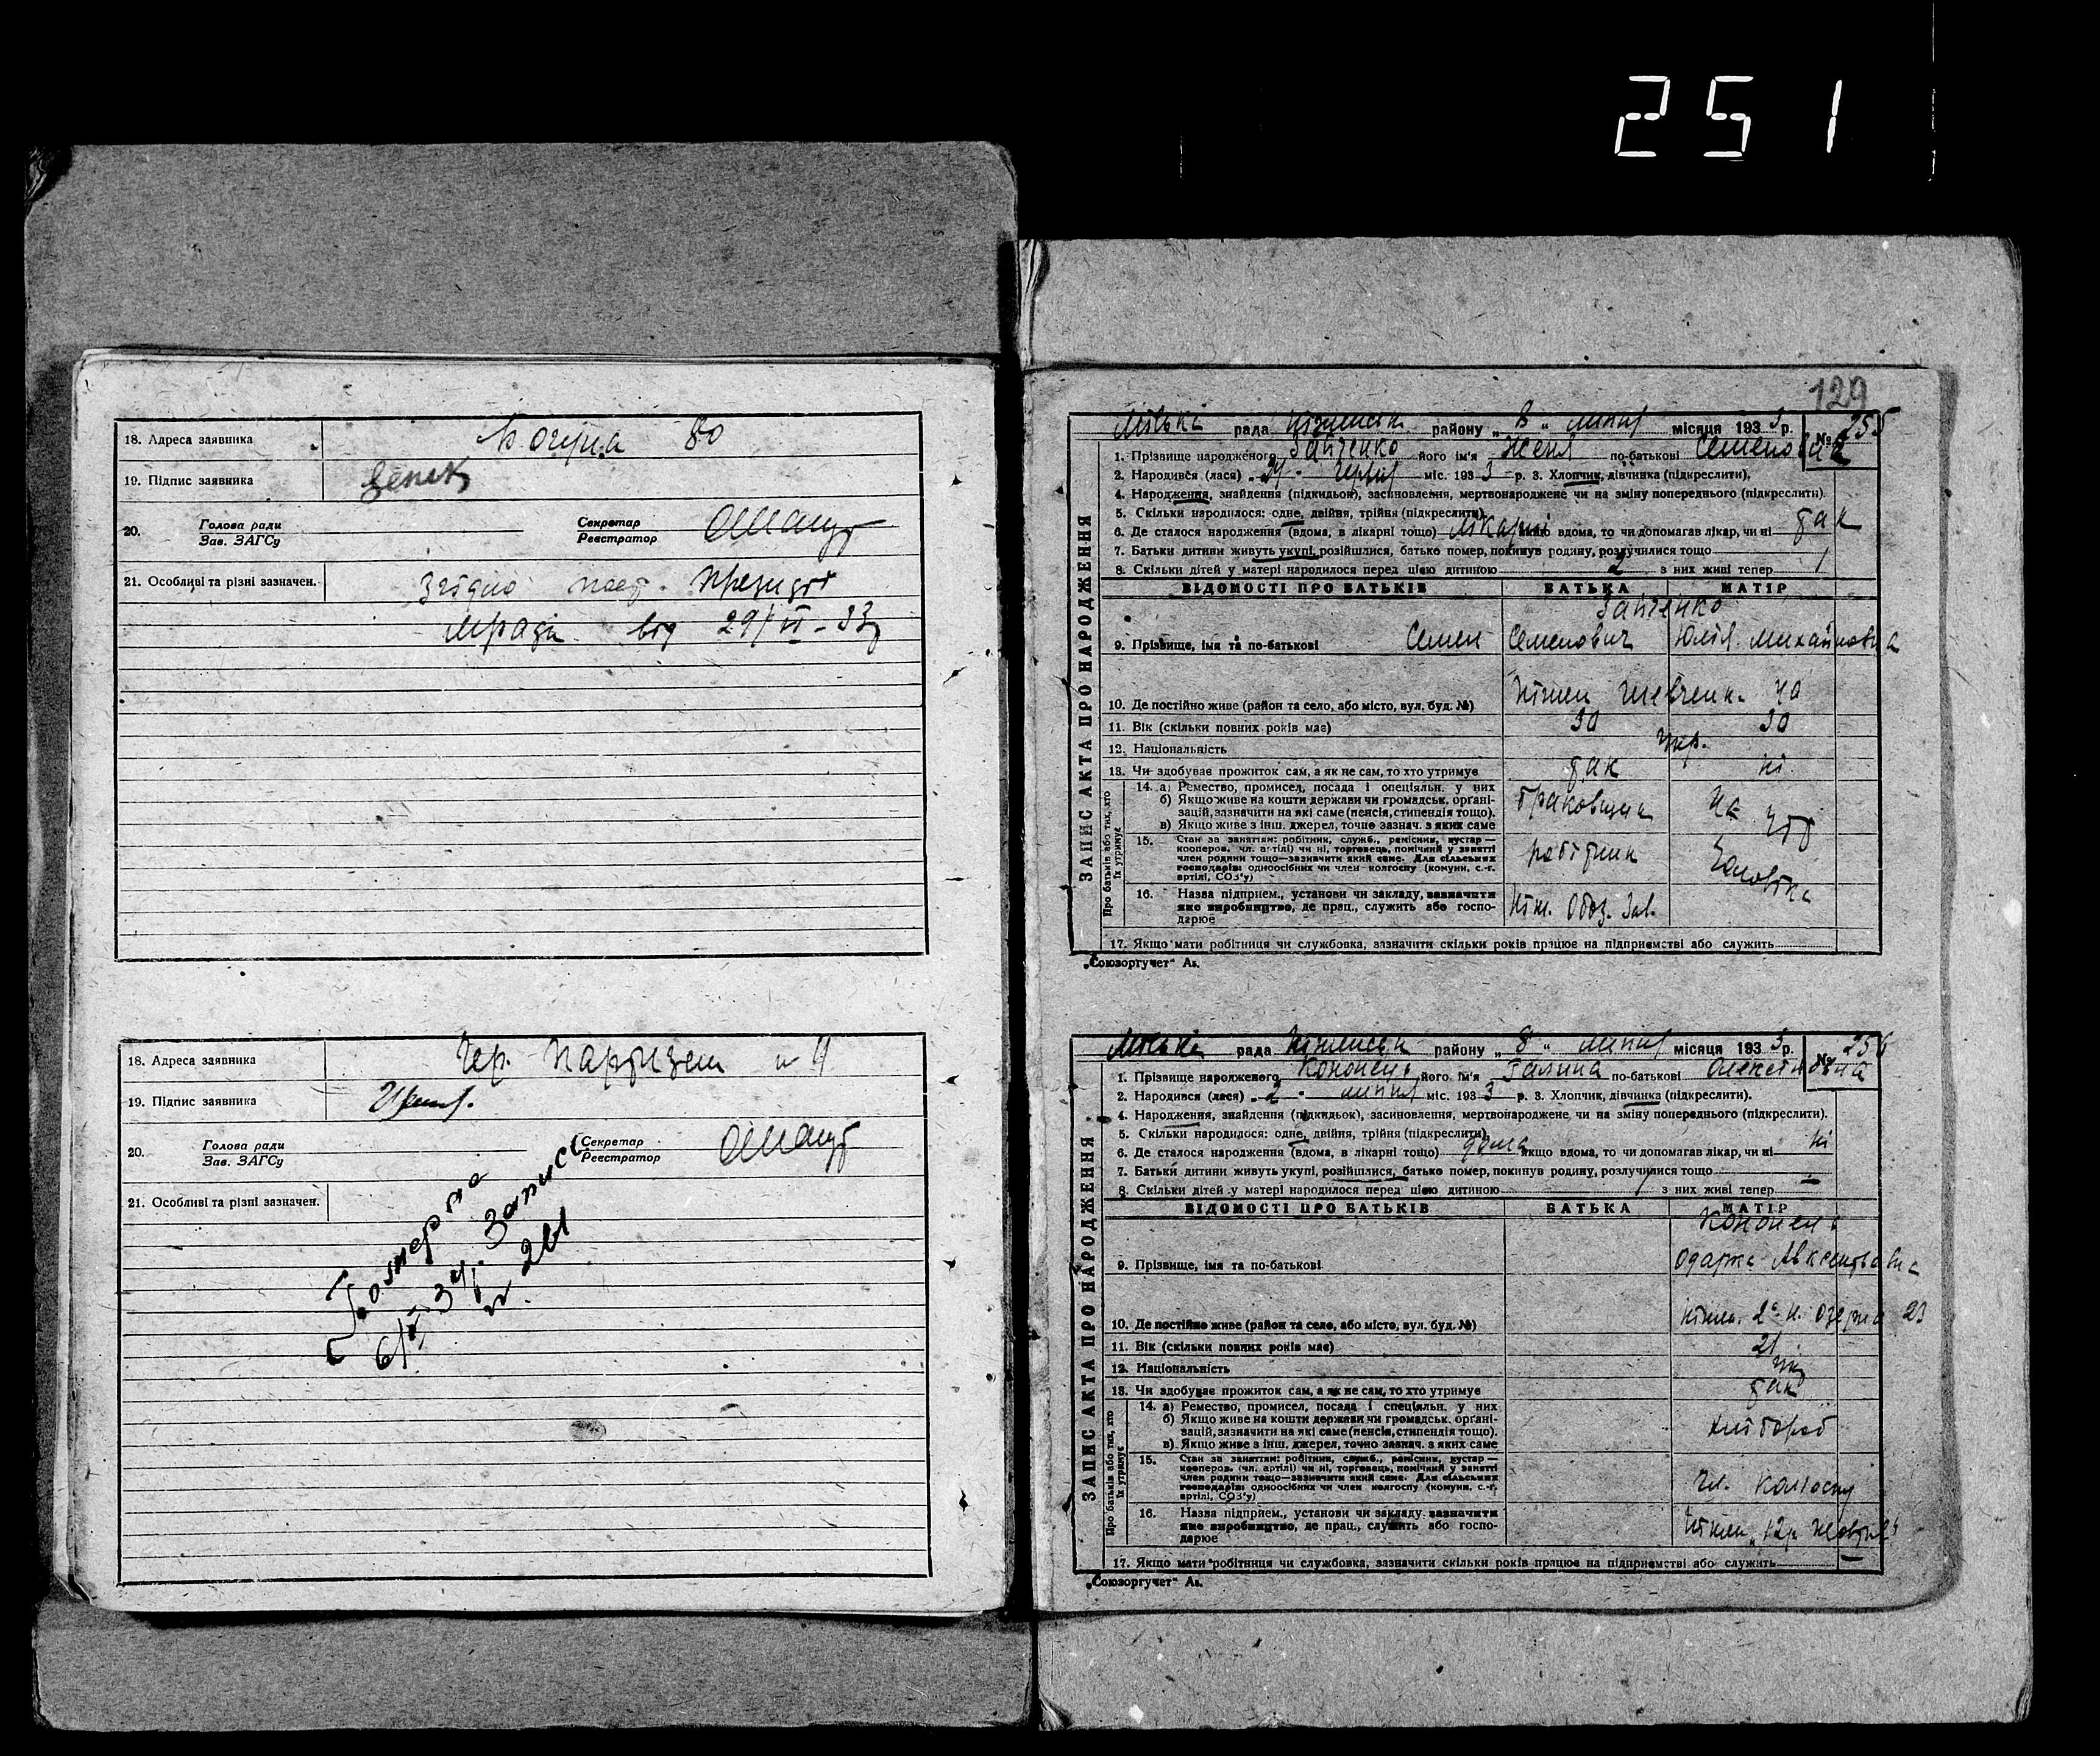 251
18. Адреса заявника 80
19. Підпис заявника
20. Голова ради Зав. ЗАГСу Секретар Реєстратор
21. Особливі та різні зазначен. Згідно пост. Президії
міськради від 29/VI-33
18. Адреса заявника Чер. Партизан № 4
19. Підпис заявника
20. Голова ради Зав. ЗАГСу Секретар Реєстратор
21. Особливі та різні зазначен.
Померла
6/ 34 р. Запис
№ 261
129
ЗАПИС АКТА ПРО НАРОДЖЕННЯ
Міська рада Ніженськ. району „ 8 “ липня місяця 193 3 р. № 255
1. Прізвище народженого Зайченко його ім'я Женя по-батькові Семенович
2. Народився (лася) червня міс. 193 3 р. 3. Хлопчик, дівчинка (підкреслити).
4. Народження, знайдення (підкидьок), засиновлення, мертвонароджене чи на зміну попереднього (підкреслити).
5. Скільки народилося: одне, двійня, трійня (підкреслити)
6. Де сталося народження (вдома, в лікарні тощо) лікарні якщо вдома, то чи допомагав лікар, чи ні так
7. Батьки дитини живуть укупі, розійшлися, батько помер, покинув родину, розлучилися тощо
8. Скільки дітей у матері народилося перед цією дитиною 2 з них живі тепер 1
ВІДОМОСТІ ПРО БАТЬКІВ БАТЬКА МАТІР
Зайченко
9. Прізвище, імя та по-батькові Семен Семенович Юлія Михайловна
10. Де постійно живе (район та село, або місто, вул. буд. №) Ніжен Шевченк. 40
11. Вік (скільки повних років має) 30 30
12. Національність Укр.
13. Чи здобуває прожиток сам, а як не сам, то хто утримує так ні
Про батьків або тих, хто їх утримує
14. а) Ремество, промисел, посада і спеціяльн. у них
б) Якщо живе на кошти держави чи громадськ. організацій, зазначити на які саме (пенсія, стипендія тощо).
в) Якщо живе з інш. джерел, точно зазнач. з яких саме
браковщик На утр
15. Стан за заняттям: робітник, служб., ремісник, кустар—кооперов. (чл. артілі) чи ні, торговець, помічний у занятті член родини тощо—зазначити який саме. Для сільських господарів: одноосібних чи член колгоспу (комуни, с.-г. артілі, СОЗ'у)
робітник Чоловіка
16. Назва підприєм., установи чи закладу, зазначити яке виробництво, де прац., служить або господарює
Ніж. Обоз. Зав.
17. Якщо мати робітниця чи службовка, зазначити скільки років працює на підприємстві або служить
„Союзоргучет“ Ав.
ЗАПИС АКТА ПРО НАРОДЖЕННЯ
Міська рада Ніженськ району „ 8 “ липня місяця 193 3 р. № 256
1. Прізвище народженого Кононець його ім'я Галина по-батькові Олексіївна
2. Народився (лася) 2 липня міс. 193 3 р. 3. Хлопчик, дівчинка (підкреслити).
4. Народження, знайдення (підкидьок), засиновлення, мертвонароджене чи на зміну попереднього (підкреслити).
5. Скільки народилося: одне, двійня, трійня (підкреслити)
6. Де сталося народження (вдома, в лікарні тощо) дома якщо вдома, то чи допомагав лікар, чи ні ні
7. Батьки дитини живуть укупі, розійшлися, батько помер, покинув родину, розлучилися тощо
8. Скільки дітей у матері народилося перед цією дитиною з них живі тепер
ВІДОМОСТІ ПРО БАТЬКІВ БАТЬКА МАТІР
Кононець
9. Прізвище, імя та по-батькові Одарка Авксентьевна
10. Де постійно живе (район та село, або місто, вул. буд. №) Ніжен. 2а н. Озерна 23
11. Вік (скільки повних років має) 21
12. Національність Укр
13. Чи здобуває прожиток сам, а як не сам, то хто утримує так
Про батьків або тих, хто їх утримує
14. а) Ремество, промисел, посада і спеціяльн. у них
б) Якщо живе на кошти держави чи громадськ. організацій, зазначити на які саме (пенсія, стипендія тощо).
в) Якщо живе з інш. джерел, точно зазнач. з яких саме
хлібороб
15. Стан за заняттям: робітник, служб., ремісник, кустар—кооперов. (чл. артілі) чи ні, торговець, помічний у занятті член родини тощо—зазначити який саме. Для сільських господарів: одноосібних чи член колгоспу (комуни, с.-г. артілі, СОЗ'у)
Чл. Колгоспу
16. Назва підприєм., установи чи закладу, зазначити яке виробництво, де прац., служить або господарює
Ніжен „12р Жовтня“
17. Якщо мати робітниця чи службовка, зазначити скільки років працює на підприємстві або служить
„Союзоргучет“ Ав.